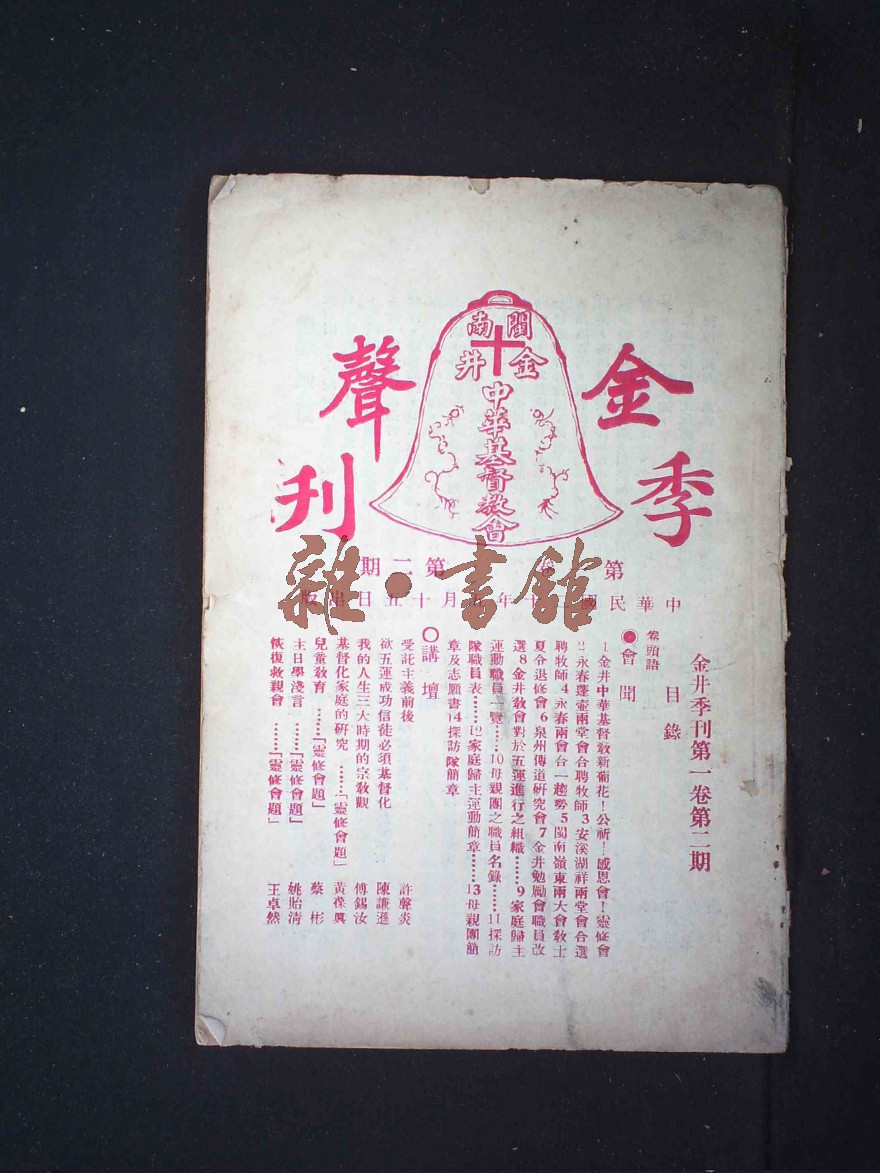 金聲
季刊
閩南
金井
中華基督教會
第 卷 第二期
中華民國二十年 月十五日出版
雜·書館
金井季刊第一卷第二期
目錄
卷頭語
●會聞
1金井中華基督教新葡花！公祈！感恩會！靈修會
2永春蓬壺兩堂會合聘牧師3安溪湖祥兩堂會合選
聘牧師4永春兩會合一趨勢5閩南嶺東兩大會敎士
夏令退修會6泉州傳道研究會7金井勉勵會職員改
選8金井敎會對於五運進行之組織……9家庭歸主
運動職員一覽……10母親團之職員名錄……11探訪
隊職員表……12家庭歸主運動簡章……13母親團簡
章及志願書14探訪隊簡章
○講壇
受託主義前後 許聲炎
欲五運成功信徒必須基督化 陳謙遜
我的人生三大時期的宗敎觀 傅錫汝
基督化家庭的研究……「靈修會題」 黃葆興
兒童敎育……「靈修會題」 蔡彬
主日學淺言……「靈修會題」 姚貽淸
恢復救親會……「靈修會題」 王卓然